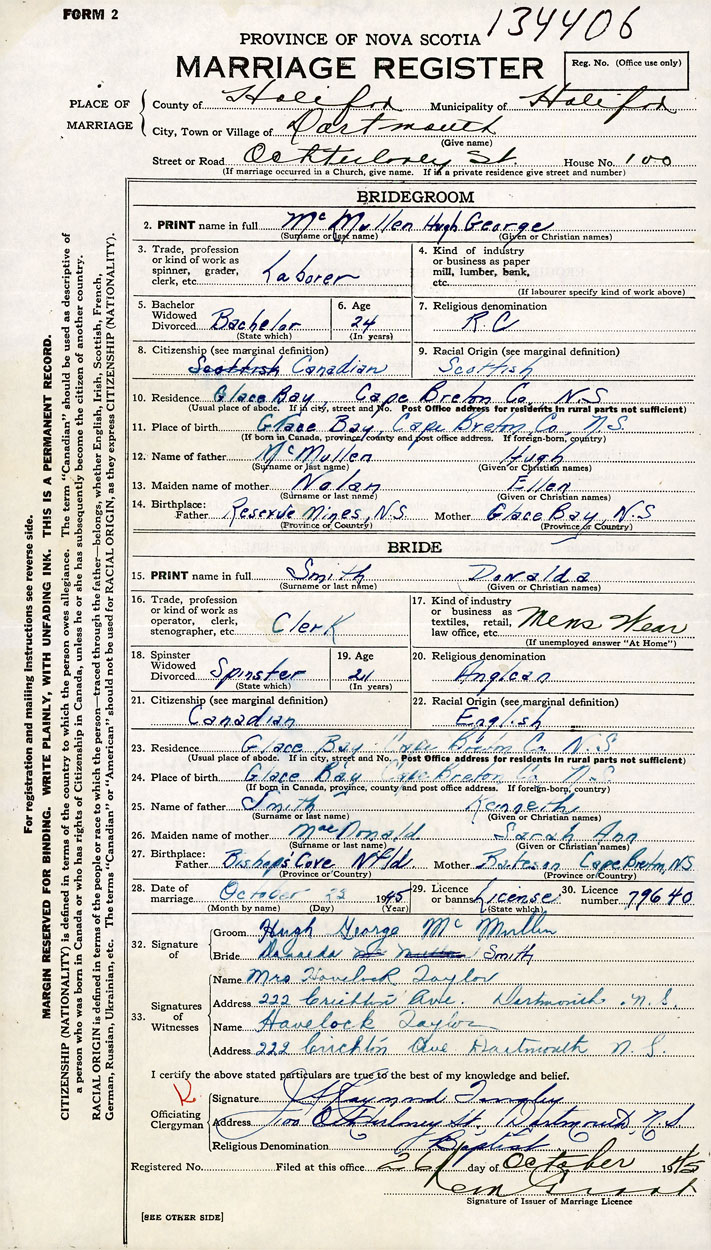 FORM 2
134406
PROVINCE OF NOVA SCOTIA
MARRIAGE REGISTER
Reg. No. (Office use only)
PLACE OF MARRIAGE
County of Halifax Municipality of Halifax
City, Town or Village of Dartmouth
(Give name)
Street or Road Ochterloney St. House No. 100
(If marriage occurred in a Church, give name. If in a private residence give street and number)
BRIDEGROOM
2. PRINT name in full McMullen Hugh George
(Surname or last name) (Given or Christian names)
3. Trade, profession or kind of work as spinner, grader, clerk, etc. Laborer
4. Kind of industry or business as paper mill, lumber, bank, etc.
(If labourer specify kind of work above)
5. Bachelor Widowed Divorced Bachelor
(State which)
6. Age 24
(In years)
7. Religious denomination R.C
8. Citizenship (see marginal definition)
Scottish Canadian
9. Racial Origin (see marginal definition)
Scottish
10. Residence Glace Bay, Cape Breton Co, N.S
(Usual place of abode. If in city, street and No. Post Office address for residents in rural parts not sufficient)
11. Place of birth Glace Bay, Cape Breton Co, N.S
(If born in Canada, province/county and post office address. If foreign-born, country)
12. Name of father McMullen Hugh
(Surname or last name) (Given or Christian names)
13. Maiden name of mother Nolan Ellen
(Surname or last name) (Given or Christian names)
14. Birthplace: Father Reserve Mines, N.S Mother Glace Bay, N.S
(Province or Country) (Province or Country)
BRIDE
15. PRINT name in full Smith Donalda
(Surname or last name) (Given or Christian names)
16. Trade, profession or kind of work as operator, clerk, stenographer, etc. Clerk
17. Kind of industry or business as textiles, retail, law office, etc. Mens Wear
(If unemployed answer "At Home")
18. Spinster Widowed Divorced Spinster
(State which)
19. Age 21
(In years)
20. Religious denomination
Anglican
21. Citizenship (see marginal definition)
Canadian
22. Racial Origin (see marginal definition)
English
23. Residence Glace Bay Cape Breton Co. N.S
(Usual place of abode. If in city, street and No. Post Office address for residents in rural parts not sufficient)
24. Place of birth Glace Bay Cape Breton Co N.S.
(If born in Canada, province, county and post office address. If foreign-born, country)
25. Name of father Smith Kenneth
(Surname or last name) (Given or Christian names)
26. Maiden name of mother MacDonald Sarah Ann
(Surname or last name) (Given or Christian names)
27. Birthplace: Father Bishops Cove Nfld Mother Bateson Cape Breton, NS
(Province or Country) (Province or Country)
28. Date of marriage October 23 1945
(Month by name) (Day) (Year)
29. Licence or banns License
(State which)
30. Licence number 79640
32. Signature of
Groom Hugh George McMullin
Bride Donalda Smith
33. Signatures of Witnesses
Name Mrs Havelock Taylor
Address 222 Crichton Ave. Dartmouth N.S.
Name Havelock Taylor
Address 222 Crichton Ave Dartmouth N.S.
I certify the above stated particulars are true to the best of my knowledge and belief.
Officiating Clergyman
Signature Raymond
Address 100 Ochterloney St, Dartmouth, N.S
Religious Denomination Baptist
Registered No. Filed at this office 26 day of October 1945
Signature of Issuer of Marriage Licence
[SEE OTHER SIDE]
For registration and mailing instructions see reverse side.
MARGIN RESERVED FOR BINDING. WRITE PLAINLY, WITH UNFADING INK. THIS IS A PERMANENT RECORD.
CITIZENSHIP (NATIONALITY) is defined in terms of the country to which the person owes allegiance. The term "Canadian" should be used as descriptive of
a person who was born in Canada or who has rights of Citizenship in Canada, unless he or she has subsequently become the citizen of another country.
RACIAL ORIGIN is defined in terms of the people or race to which the person—traced through the father—belongs, whether English, Irish, Scottish, French,
German, Russian, Ukrainian, etc. The terms "Canadian" or "American" should not be used for RACIAL ORIGIN, as they express CITIZENSHIP (NATIONALITY).